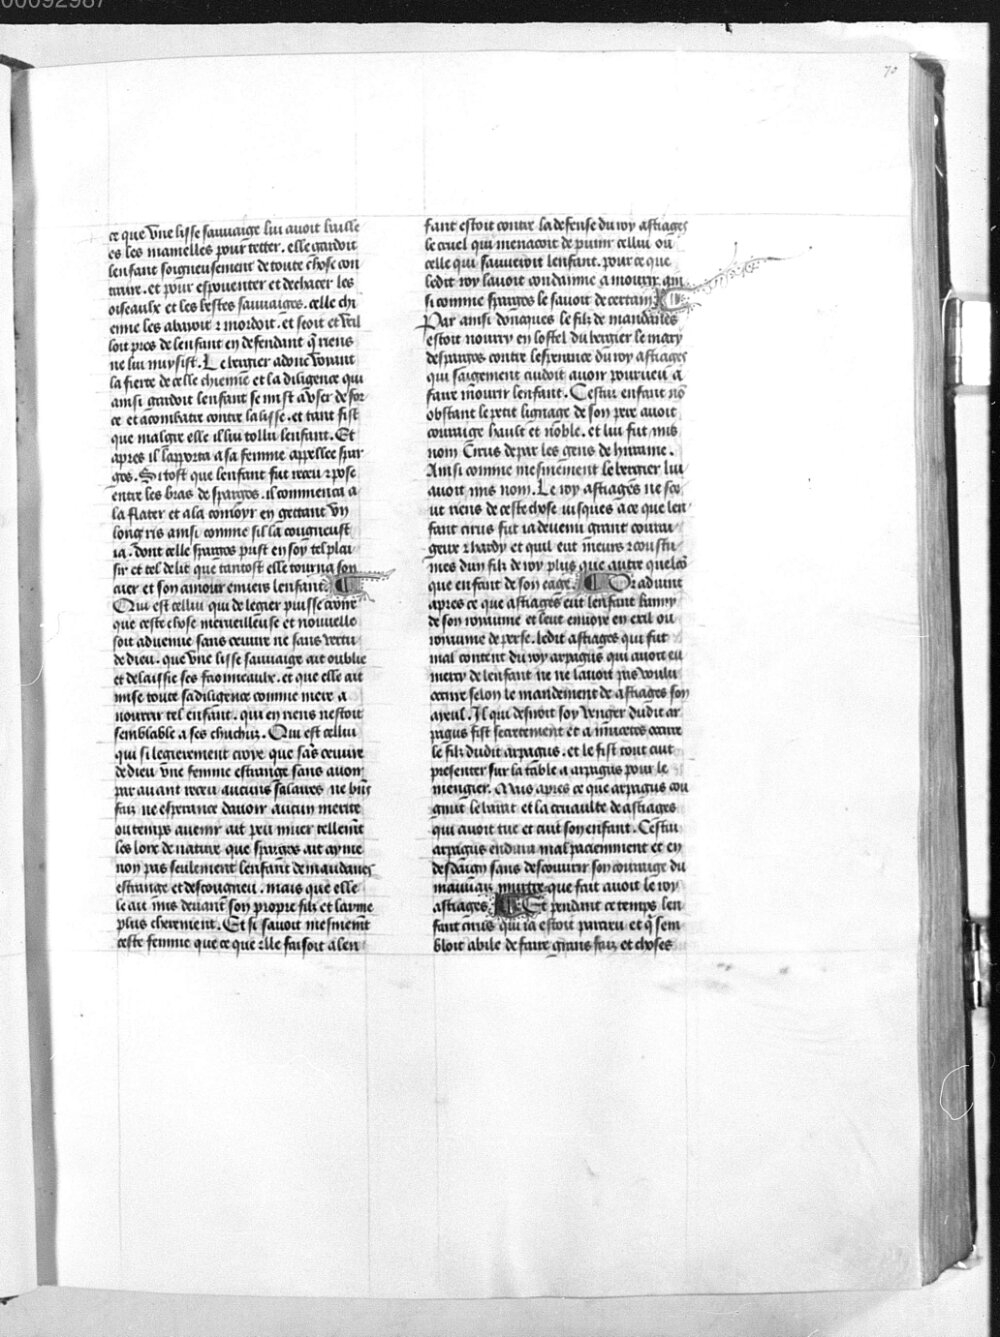 00092987
70
ce que vne lisse sauuaige lui auoit baille
es les mamelles pour tetter. elle gardoit
lenfant soigneusement de toute chose con
traire. et pour espouenter et dechacer les
oiseaulx et les bestes sauuaiges. celle chi
enne les abaioit ⁊ mordoit. et seoit et veil
loit pres de lenfant en defendant q̃ riens
ne lui nuysist. Le bergier adonc voiant
la fierte de celle chienne et la diligence qui
ainsi gardoit lenfant se mist a vser de for
ce et a combatre contre la lisse. et tant fist
que malgre elle il lui tollu lenfant. Et
apres il lapporta a sa femme appellee spar
gos. Si tost que lenfant fut receu ⁊ pose
entre les bras de spargos. il commenca a
la flater et a la conioyr en gettant vn
long ris ainsi comme sil la congneust
ia. dont celle spargos prist en soy tel plai
sir et tel delit que tantost elle tourna son
cuer et son amour enuers lenfant.
Qui est cellui qui de legier puisse croire
que ceste chose merueilleuse et nouuelle
soit aduenue sans oeuure ne sans vertu
de dieu. que vne lisse sauuaige ait oublie
et delaissie ses faonneaulx. et que elle ait
mise toute sa diligence comme mere a
nourrir tel enfant. qui en riens nestoit
semblable a ses chuchuz. Qui est cellui
qui si legierement croye que sãs oeuure
de dieu vne femme estrange sans auoir
par auant receu aucuns salaires ne biẽs
faiz ne esperance dauoir aucun merite
ou temps auenir ait peu muer tellemẽt
les loix de nature que spargos ait ayme
non pas seulement lenfant de mandanes
estrange et descougneu. mais que elle
le ait mis deuant son propre filz et laime
plus chierement. Et si sauoit mesmemẽt
ceste femme que ce que elle faisoit a len
fant estoit contre la defense du roy astiages
le cruel qui menacoit de punir cellui ou
celle qui sauueroit lenfant. pour ce que
ledit roy lauoit condamne a mourir. ain
si comme spargos le sauoit de certain.
Par ainsi doncques le filz de mandanes
estoit nourry en lostel du bergier le mary
de spargos contre lesperance du roy astiages
qui saigement cuidoit auoir pourueu a
faire mourir lenfant. Cestui enfant nõ
obstant le petit lignage de son pere auoit
couraige hault et noble. et lui fut mis
nom Cirus de par les gens de hircanie.
Ainsi comme mesmement le bergier lui
auoit mis nom. Le roy astiages ne sce
ut riens de ceste chose iusques a ce que len
fant cirus fut ia deuenu grant courai
geux ⁊ hardy et quil eut meurs ⁊ coustu
mes dun filz de roy plus que autre quelcõ
que enfant de son eage. Or aduint
apres ce que astiages eut lenfant banny
de son royaume et leut enuoye en exil ou
royaume de perse. ledit astiages qui fut
mal content du roy arpagus qui auoit eu
mercy de lenfant ne ne lauoit pas voulu
occire selon le mandement de astiages son
ayeul. Il qui desiroit soy venger dudit ar
pagus fist secretement et a murtres occire
le filz dudit arpagus. et le fist tout cuit
presenter sur la table a arpagus pour le
mengier. Mais apres ce que arpagus cou
gnut le barat et la cruaulte de astiages
qui auoit tue et cuit son enfant. Cestui
arpagus endura mal paciemment et en
desdaing sans descouurir son couraige du
mauuaiz murtre que fait auoit le roy
astiages. Et pendant ce temps len
fant cirus qui ia estoit parcreu et q̃ sem
bloit abile de faire grans faiz et choses